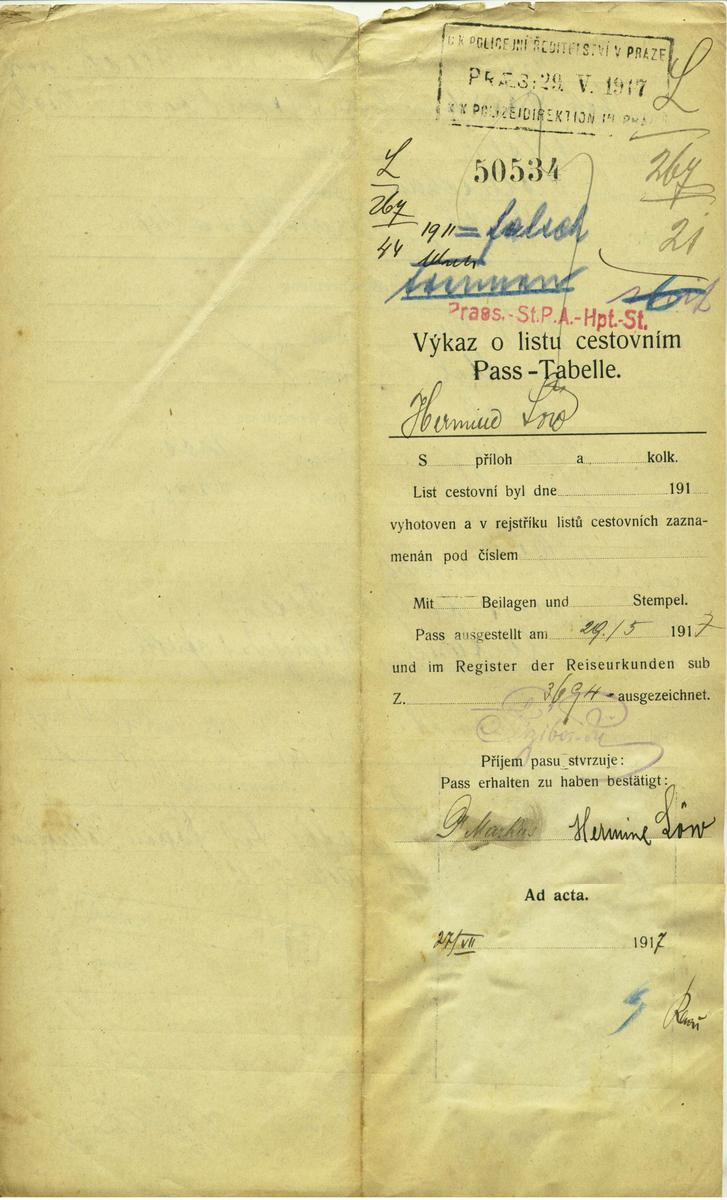 C. K. POLICEJNÍ ŘEDITELSTVÍ V PRAZE
PRÆS: 29. V. 1917
K. K. POLIZEIDIREKTION IN PRAG
L
267
21
50534
L
267
44
1911 = falsch
Praes.-St.P.A.-Hpt.-St.
Výkaz o listu cestovním
Pass-Tabelle.
Hermine Löw
S příloh a kolk.
List cestovní byl dne 191
vyhotoven a v rejstříku listů cestovních zazna-
menán pod číslem
Mit Beilagen und Stempel.
Pass ausgestellt am 29./5 1917
und im Register der Reiseurkunden sub
Z. 3694 ausgezeichnet.
Příjem pasu stvrzuje:
Pass erhalten zu haben bestätigt:
Dr Markus Hermine Löw
Ad acta.
27/VII 1917